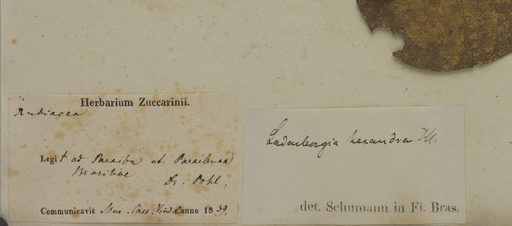 Herbarium Zuccarinii.
Rubiacea
Legit ad Paraiba et Paraibuna
Brasiliae
Dr. Pohl.
Communicavit Mus. Caes. Vind. anno 1839.
Ladenbergia hexandra Kl.
det. Schumann in Fl. Bras.